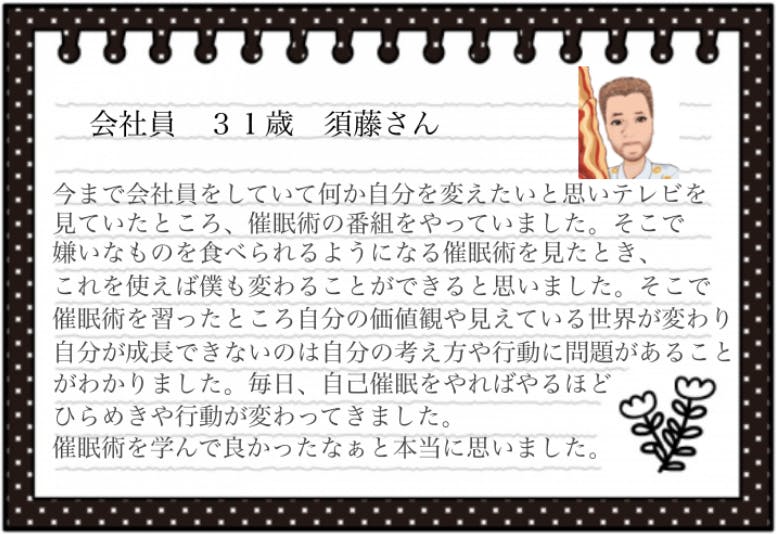 会社員　３１歳　須藤さん
今まで会社員をしていて何か自分を変えたいと思いテレビを
見ていたところ、催眠術の番組をやっていました。そこで
嫌いなものを食べられるようになる催眠術を見たとき、
これを使えば僕も変わることができると思いました。そこで
催眠術を習ったところ自分の価値観や見えている世界が変わり
自分が成長できないのは自分の考え方や行動に問題があること
がわかりました。毎日、自己催眠をやればやるほど
ひらめきや行動が変わってきました。
催眠術を学んで良かったなぁと本当に思いました。